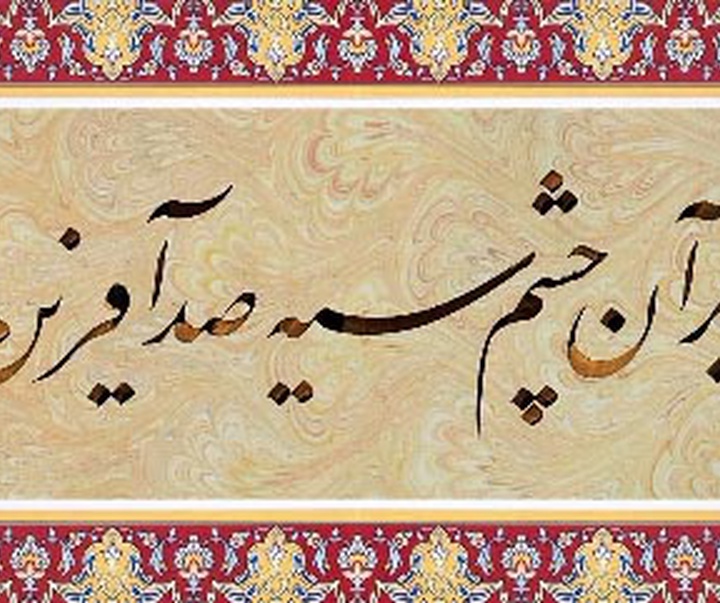 بر آن چشم سیه صد آفرین